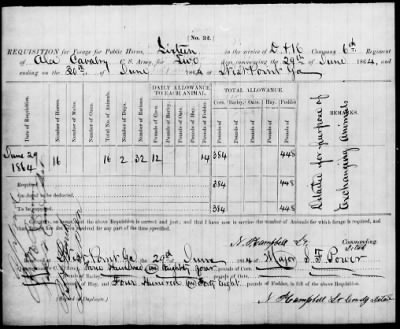 [No. 32.]
REQUISITION for Forage for Public Horses, Sixteen in the service of D & 16 Company 6th Regiment
of Ala Cavalry C. S. Army, for Two days, commencing the 29th of June 1864, and
ending on the 30th of June 1864, at West Point Ga
Date of Requisition.
Number of Horses.
Number of Mules.
Number of Oxen.
Total No. of Animals.
Number of Days.
Number of Rations.
DAILY ALLOWANCE TO EACH ANIMAL.
Pounds of Corn.
Pounds of Barley.
Pounds of Oats.
Pounds of Hay.
Pounds of Fodder.
TOTAL ALLOWANCE.
Corn.
Barley.
Oats.
Hay.
Fodder
REMARKS.
June 29 1864 16 16 2 32 12 14 384 448
Required, 384 448
On hand to be deducted,
To be supplied, 384 448
Detailed for purpose of
Exchanging Animals.
the above Requisition is correct and just; and that I have now in the service the Number of Animals for which forage is required,
N. Hampbill Lt. Commanding
West Point Ga the 29th of June 1864 of Major J. T. Power
Three hundred and Eighty four pounds of Corn, pounds of
pounds of Hay, Four Hundred and Forty Eight pounds of Fodder, in full of the above Requisition.
[Signed in Duplicate.]
N. Hampbill Lt Comdg